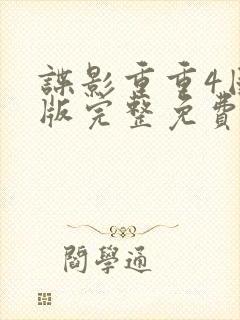 諜影重重4
版完整免費
閻學通